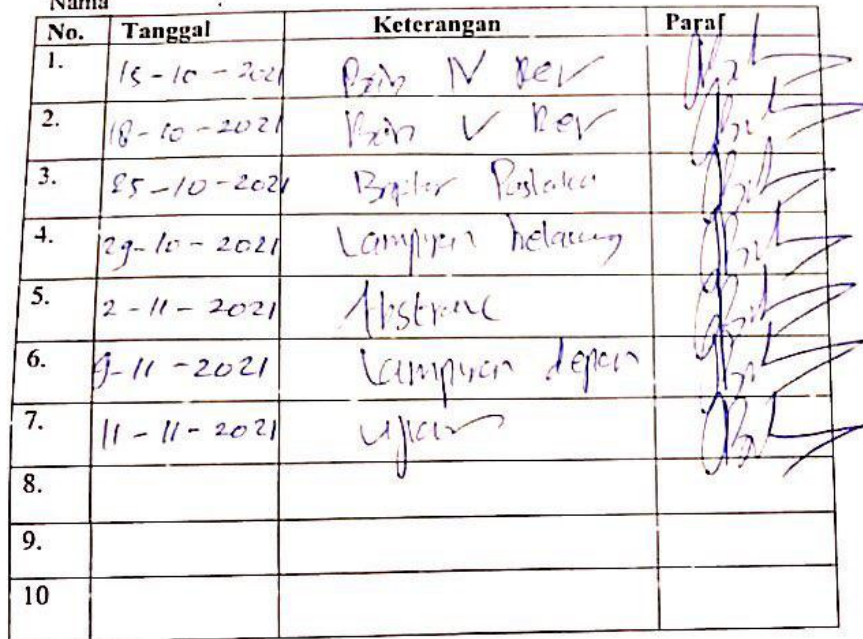 Nama
No. Tanggal Keterangan Paraf
1. 15-10-2021 Bab IV Rev
2. 18-10-2021 Bab V Rev
3. 25-10-2021 Pustaka
4. 29-10-2021 Lampiran belakang
5. 2-11-2021 Abstrak
6. 9-11-2021 Lampiran depan
7. 11-11-2021 Ujian
8.
9.
10